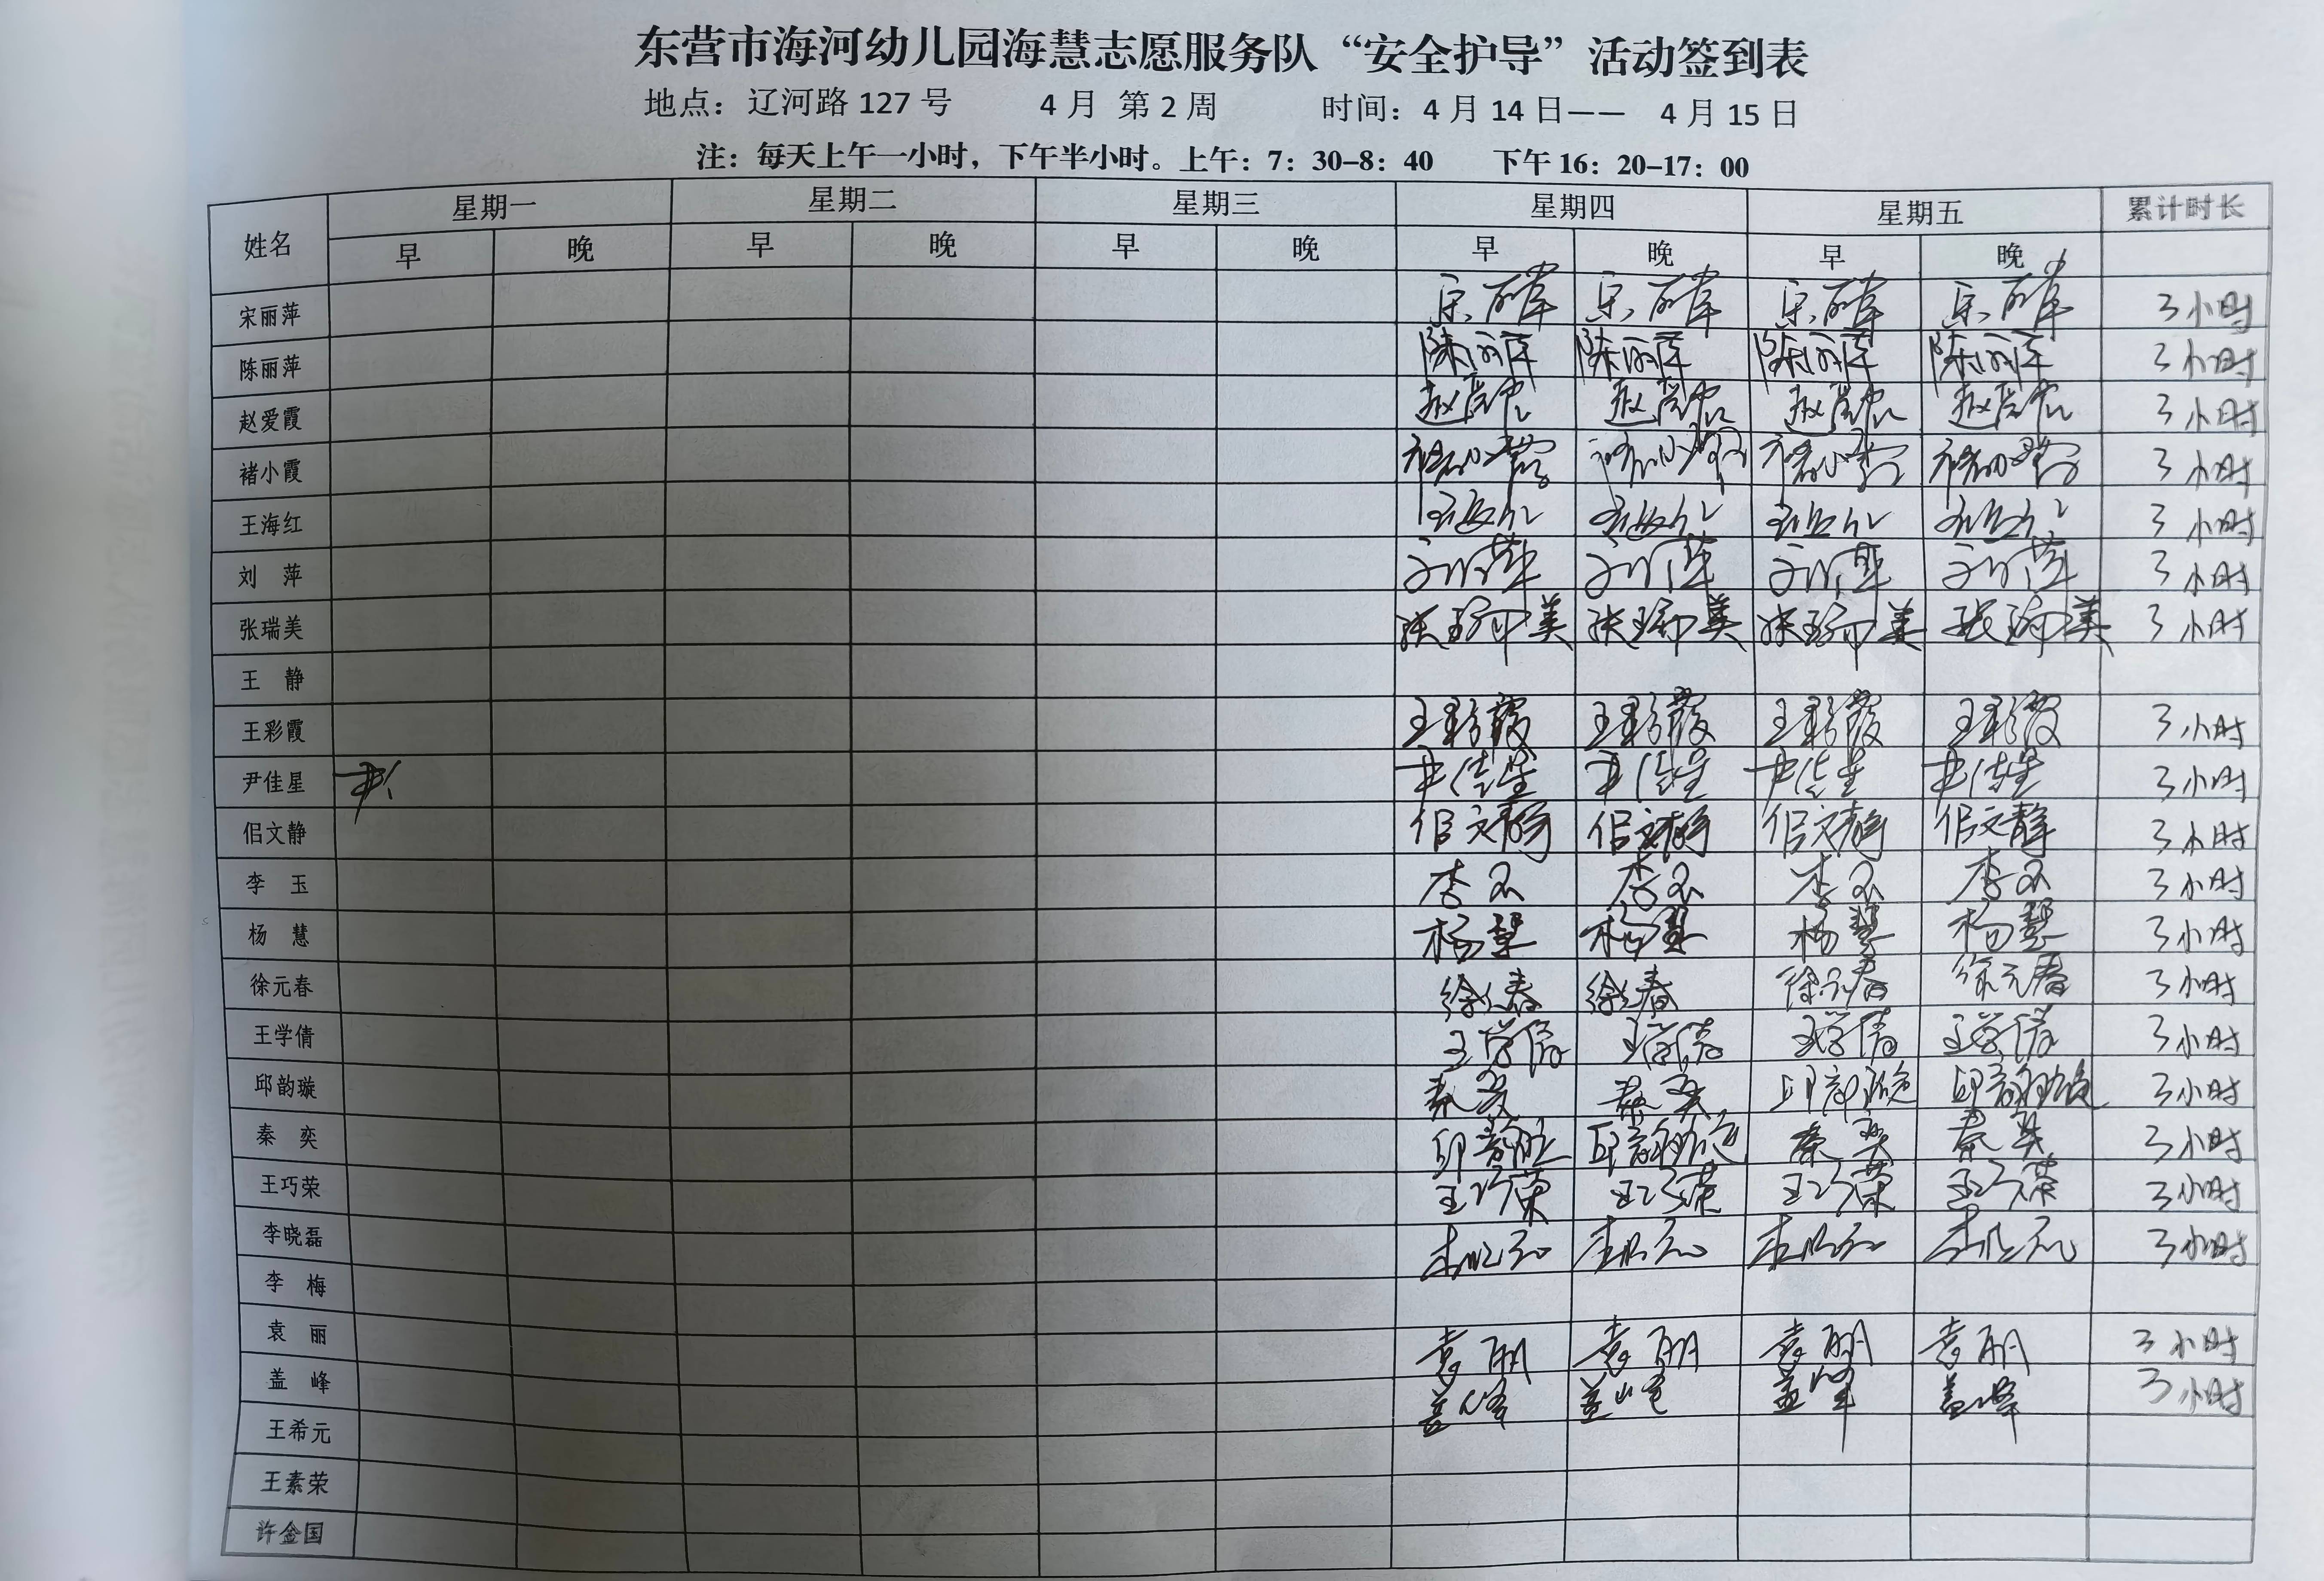 东营市海河幼儿园海慧志愿服务队“安全护导”活动签到表
地点：辽河路 127 号 4 月 第 2 周 时间：4 月 14 日—— 4 月 15 日
注：每天上午一小时，下午半小时。上午：7：30-8：40 下午 16：20-17：00
姓名 星期一 星期二 星期三 星期四 星期五 累计时长
早 晚 早 晚 早 晚 早 晚 早 晚
宋丽萍 宋丽萍 宋丽萍 宋丽萍 宋丽萍 3小时
陈丽萍 陈丽萍 陈丽萍 陈丽萍 陈丽萍 3小时
赵爱霞 赵爱霞 赵爱霞 赵爱霞 赵爱霞 3小时
褚小霞 褚小霞 褚小霞 褚小霞 褚小霞 3小时
王海红 王海红 王海红 王海红 王海红 3小时
刘 萍 刘萍 刘萍 刘萍 刘萍 3小时
张瑞美 张瑞美 张瑞美 张瑞美 张瑞美 3小时
王 静
王彩霞 王彩霞 王彩霞 王彩霞 王彩霞 3小时
尹佳星 尹 尹佳星 尹佳星 尹佳星 尹佳星 3小时
佀文静 佀文静 佀文静 佀文静 佀文静 3小时
李 玉 李玉 李玉 李玉 李玉 3小时
杨 慧 杨慧 杨慧 杨慧 杨慧 3小时
徐元春 徐元春 徐元春 徐元春 徐元春 3小时
王学倩 王学倩 王学倩 王学倩 王学倩 3小时
邱韵璇 秦奕 秦奕 邱韵璇 邱韵璇 3小时
秦 奕 邱韵璇 邱韵璇 秦奕 秦奕 3小时
王巧荣 王巧荣 王巧荣 王巧荣 王巧荣 3小时
李晓磊 李晓磊 李晓磊 李晓磊 李晓磊 3小时
李 梅
袁 丽 袁丽 袁丽 袁丽 袁丽 3小时
盖 峰 盖峰 盖峰 盖峰 盖峰 3小时
王希元
王素荣
许金国